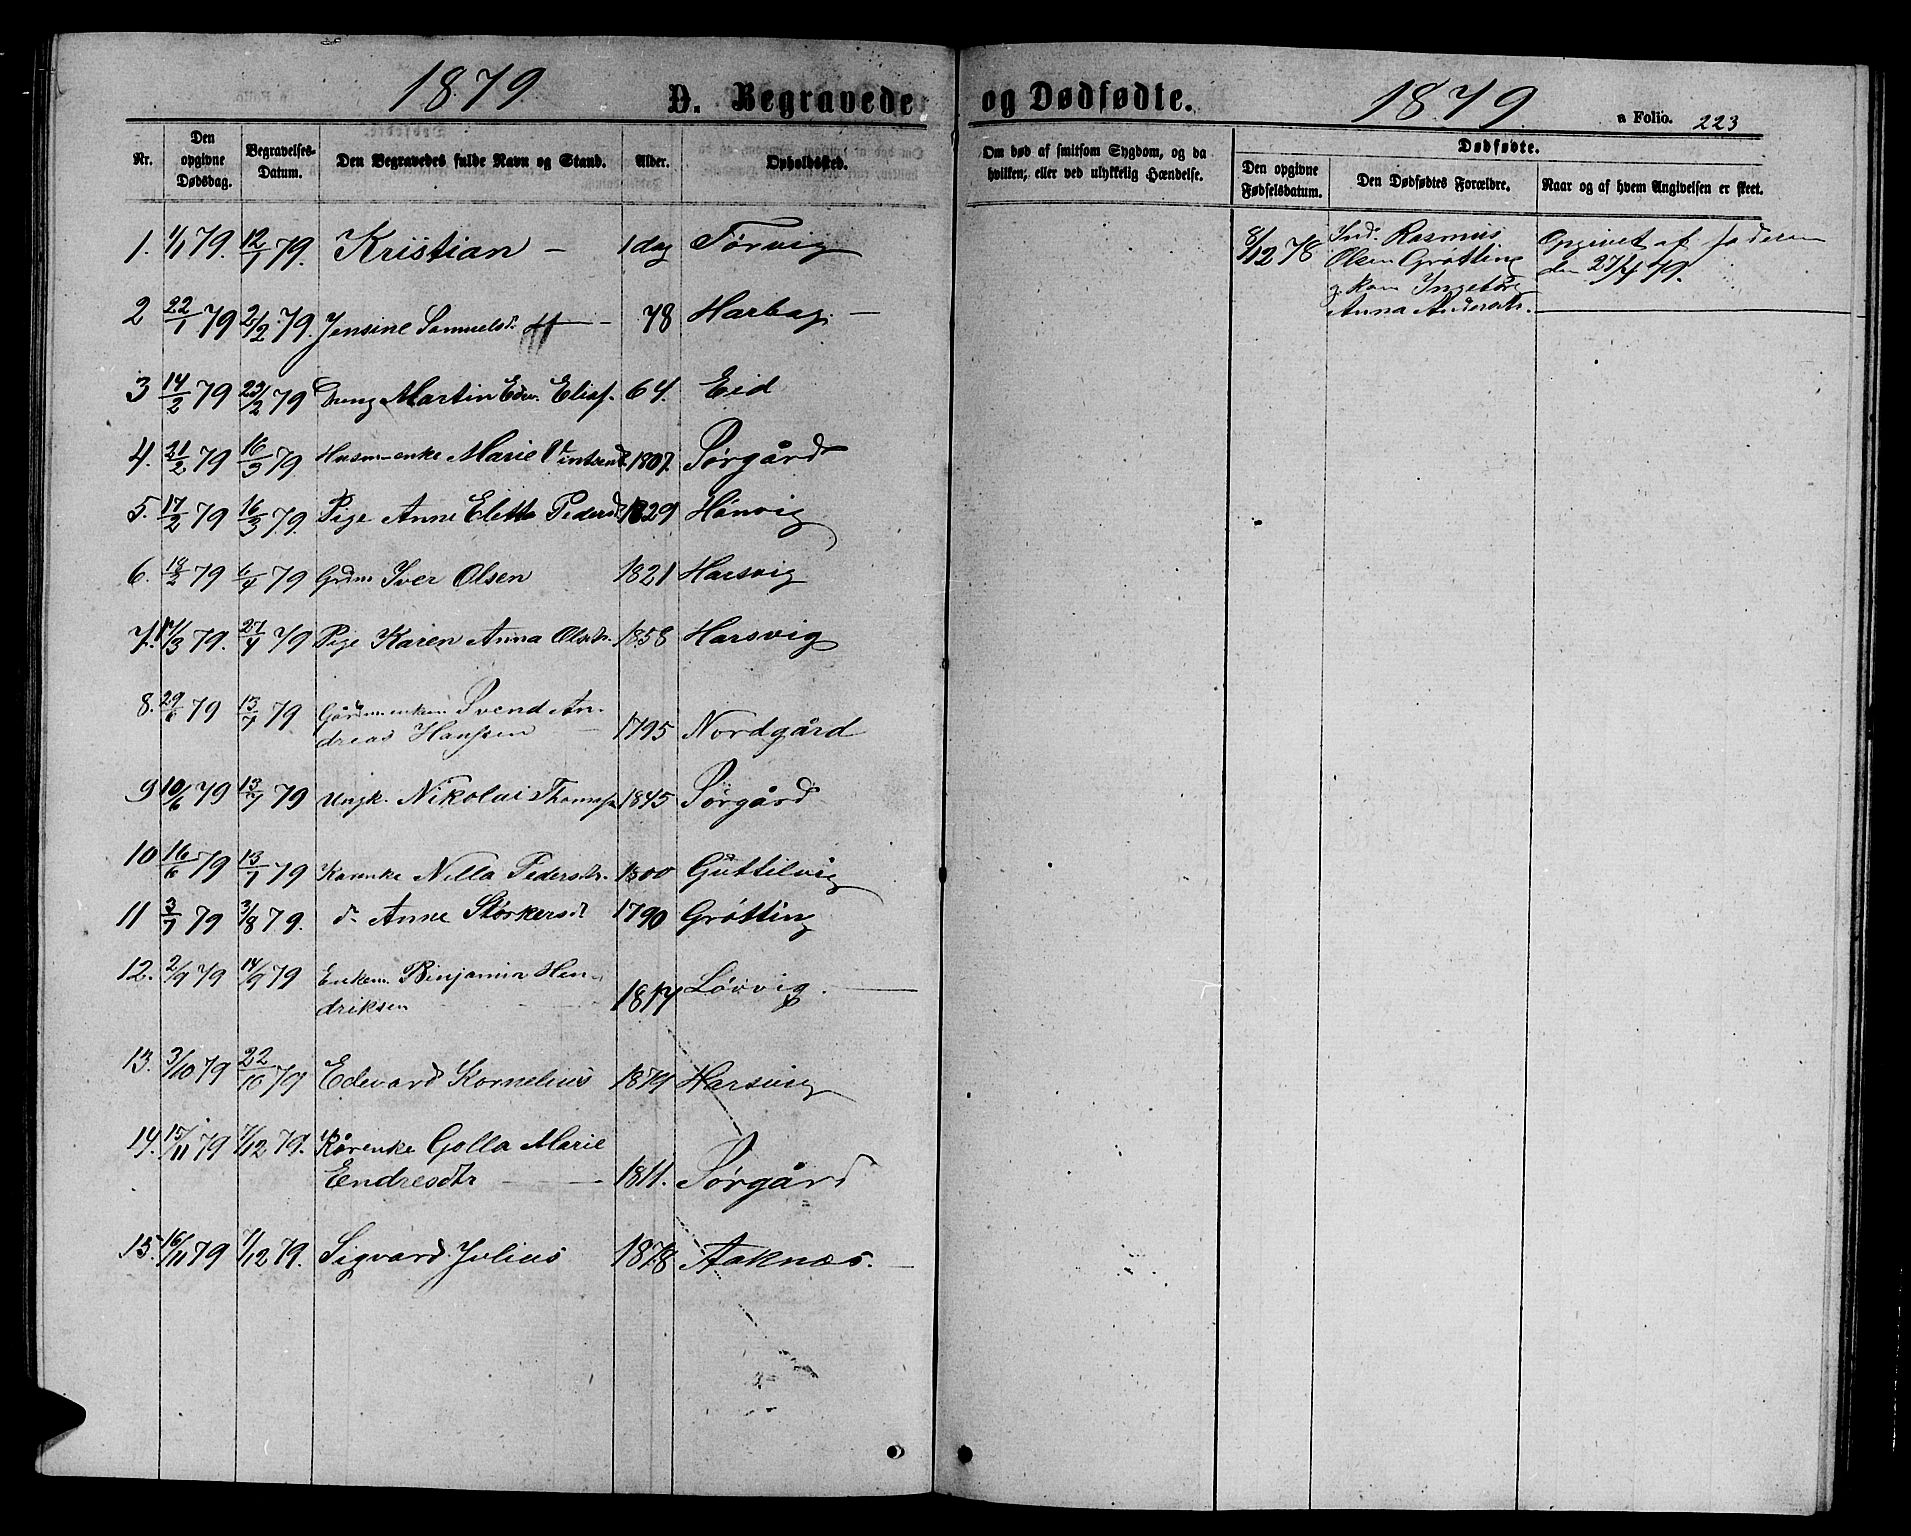 1879 D. Begravede og Dødfødte. 1879. a Folio. 223
Nr. Den opgivne Dødsdag. Begravelses-Datum. Den Begravedes fulde Navn og Stand. Alder. Opholdssted. Om død af smitsom Sygdom, og da hvilken; eller ved ulykkelig Hændelse. Dødfødte. Den opgivne Fødselsdatum. Den Dødfødtes Forældre. Naar og af hvem Angivelsen er skeet.
1. 1/1 79. 12/1 79. Kristian – 1 dag Tørvig
8/12 78 Ind. Rasmus
Olsen Grøtting
og Kone Ingeborg
Anna Andersdtr.
Opgivet af Faderen
den 27/4 79.
2 22/1 79 2/2 79. Jensine Samuelsd. 78 Harbag. –
3 14/2 79 23/2 79 Dreng Martin Edv. Eliass. 64. Eid
4. 21/2 79 16/3 79 Husm-enke Marie Vintsensd. 1807. Sørgård
5. 17/2 79 16/3 79. Pige Anne Eletta Pedersd. 1829 Hønvig
6. 18/2 79 6/4 79 Grdm Iver Olsen 1821 Harsvig
7. 17/3 79. 27/4 79 Pige Karen Anna Olsdtr. 1858 Harsvig
8. 29/6 79 13/7 79 Gårdm.enkem Svend An-
dreas Hanssen – 1795 Nordgård
9 10/6 79 13/7 79 Ungk. Nikolai Thomass. 1845 Sørgård
10 16/6 79 13/7 79 Kårenke Nilla Pedersdtr. 1800 Guttelvig
11 3/7 79 3/8 79. d. Anne Størkersd 1790 Grøtting
12. 2/9 79 14/9 79 Enkem. Binjamin Hen-
driksen 1814 Løvvig. –
13. 3/10 79 22/10 79 Edevard Kornelius 1879 Harsvig
14. 15/11 79 7/12 79. Kårenke Golla Marie
Endresdtr – 1811. Sørgård
15. 16/11 79 7/12 79. Sigvard Julius 1878 Aaknæs. –